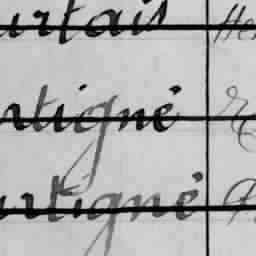 urtais He
rtigné
urtigné